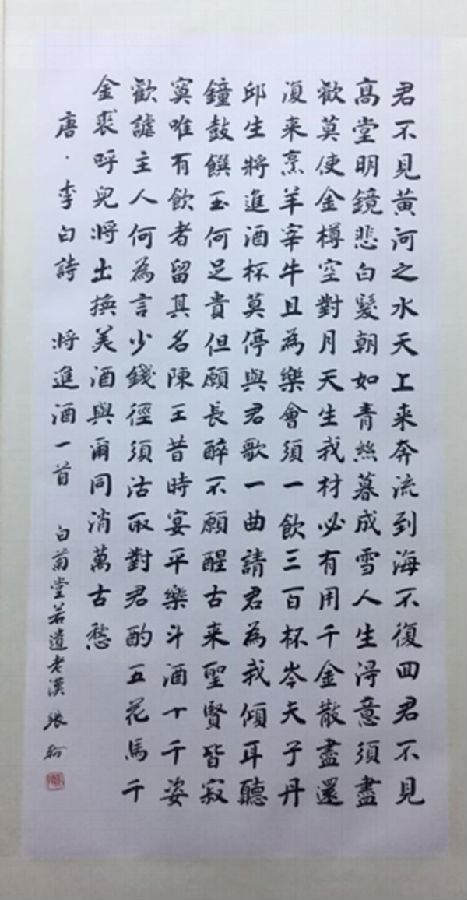 君不見黃河之水天上来奔流到海不復回君不見
高堂明鏡悲白髮朝如青絲暮成雪人生淂意須盡
歡莫使金樽空對月天生我材必有用千金散盡還
復来烹羊宰牛且為樂會須一飲三百杯岑夫子丹
邱生將進酒杯莫停與君歌一曲請君為我傾耳聽
鐘鼓饌玉何足貴但願長醉不願醒古来聖賢皆寂
寞唯有飲者留其名陳王昔時宴平樂斗酒十千姿
歡謔主人何為言少錢徑須沽取對君酌五花馬千
金裘呼兒將出換美酒與爾同消萬古愁
唐·李白詩 將進酒一首 白菊堂若遺老漢 張